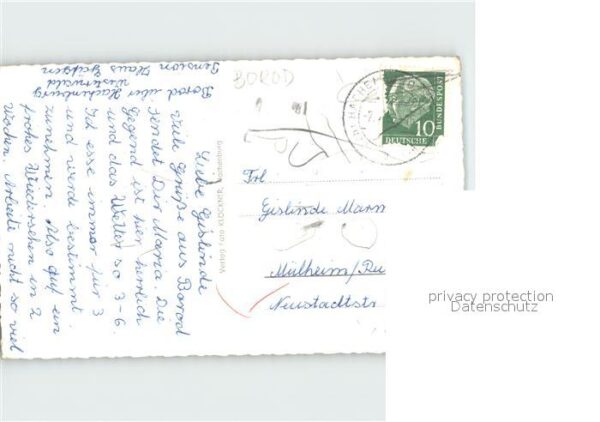 Borod über Hachenburg
Westerwald
Pension Haus
Liebe Gislinde
viele Grüße aus Borod
sendet Dir Maria. Die
Gegend ist hier herrlich
und das Wetter so 3-6.
Ich esse immer für 3
und werde bestimmt
zunehmen. Also auf ein
frohes Wiedersehen in 2
Wochen. Arbeite nicht so viel
BOROD
Verlag: Foto KLÖCKNER, Hachenburg
10
DEUTSCHE
BUNDESPOST
Frl.
Gislinde
Mülheim/Ru
Neustadtstr
privacy protection
Datenschutz